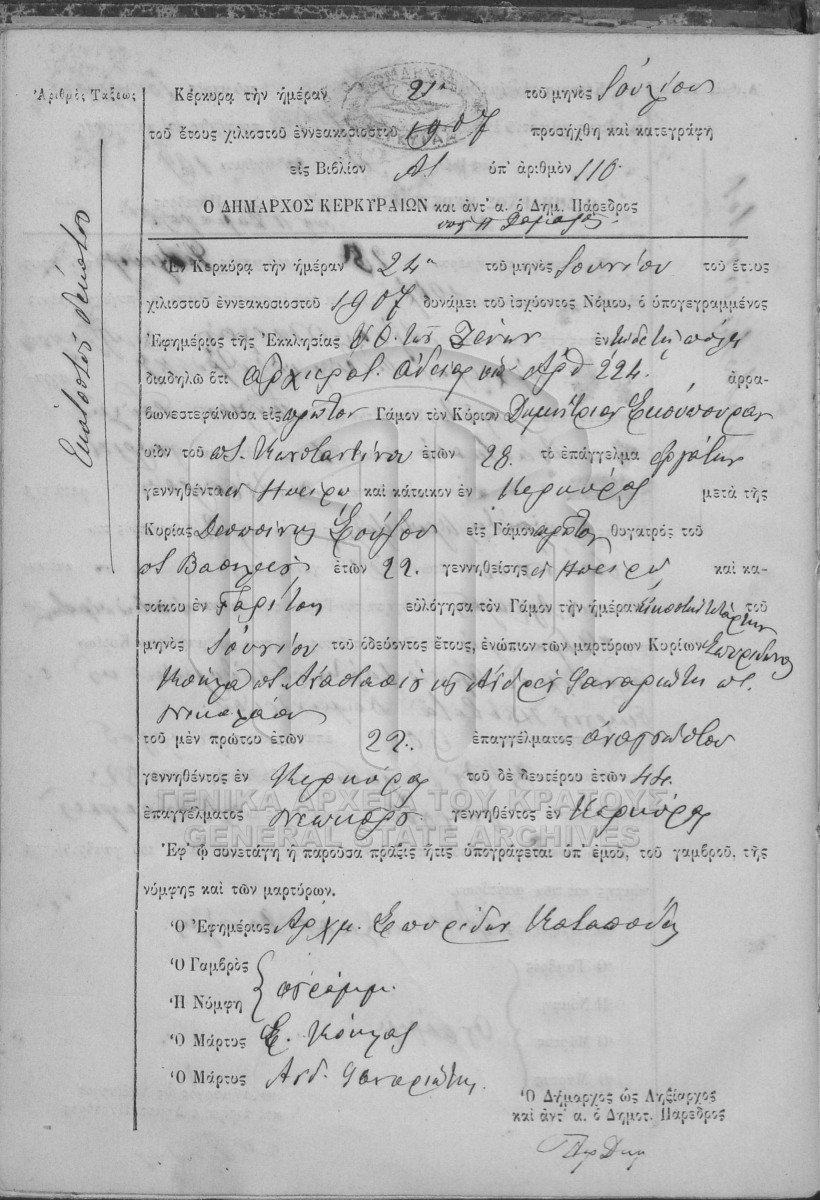 Ἀριθμὸς Τάξεως
Ἑκατοστὸν δέκατον
Κέρκυρα τὴν ἡμέραν 21η τοῦ μηνὸς Ἰουλίου
τοῦ ἔτους χιλιοστοῦ ἐννεακοσιοστοῦ 1907 προσήχθη καὶ κατεγράφη
εἰς Βιβλίον ὑπ' ἀριθμὸν 110.
Ο ΔΗΜΑΡΧΟΣ ΚΕΡΚΥΡΑΙΩΝ καὶ ἀντ' α. ὁ Δημ. Πάρεδρος
Ἐν Κερκύρᾳ τὴν ἡμέραν 24η τοῦ μηνὸς Ἰουνίου τοῦ ἔτους
χιλιοστοῦ ἐννεακοσιοστοῦ 1907 δυνάμει τοῦ ἰσχύοντος Νόμου, ὁ ὑπογεγραμμένος
Ἐφημέριος τῆς Ἐκκλησίας Υ. Θ. τῶν Ξένων ἐν
διαδηλῶ ὅτι ἀρχιερατ. ἀδείας ὑπ' ἀρθ 224. ἀρρα-
βωνεστεφάνωσα εἰς πρῶτον Γάμον τὸν Κύριον Δημήτριον Σκούπουραν
υἱὸν τοῦ ποτ. Κωνσταντίνου ἐτῶν 28. τὸ ἐπάγγελμα ἐργάτην
γεννηθέντα ἐν Ἠπείρῳ καὶ κάτοικον ἐν Κερκύρας μετὰ τῆς
Κυρίας Δεσποίνης εἰς Γάμον πρῶτον θυγατρὸς τοῦ
ποτ. Βασιλείου ἐτῶν 22. γεννηθείσης ἐν Ἠπείρῳ καὶ κα-
τοίκου ἐν Γαρίτσῃ εὐλόγησα τὸν Γάμον τὴν ἡμέραν εἰκοστὴν τετάρτην τοῦ
μηνὸς Ἰουνίου τοῦ ὁδεύοντος ἔτους, ἐνώπιον τῶν μαρτύρων Κυρίων Σπυρίδωνος
Κόκλα ποτ. Ἀναστασίου καὶ Ἀνδρέου Φαναριώτη ποτ.
Νικολάου
τοῦ μὲν πρώτου ἐτῶν 22. ἐπαγγέλματος
γεννηθέντος ἐν Κερκύρας τοῦ δὲ δευτέρου ἐτῶν 44.
ἐπαγγέλματος γεννηθέντος ἐν Κερκύρας
ΓΕΝΙΚΑ ΑΡΧΕΙΑ ΤΟΥ ΚΡΑΤΟΥΣ
GENERAL STATE ARCHIVES
Ἐφ' ᾧ συνετάγη ἡ παροῦσα πρᾶξις ἥτις ὑπογράφεται ὑπ' ἐμοῦ, τοῦ γαμβροῦ, τῆς
νύμφης καὶ τῶν μαρτύρων.
Ὁ Ἐφημέριος Ἀρχμ. Σπυρίδων Καταπόδης
Ὁ Γαμβρὸς
Ἡ Νύμφη ἀγράμμ.
Ὁ Μάρτυς Σ. Κόκλας
Ὁ Μάρτυς Ἀνδ. Φαναριώτης.
Ὁ Δήμαρχος ὡς Ληξίαρχος
καὶ ἀντ' α. ὁ Δημοτ. Πάρεδρος